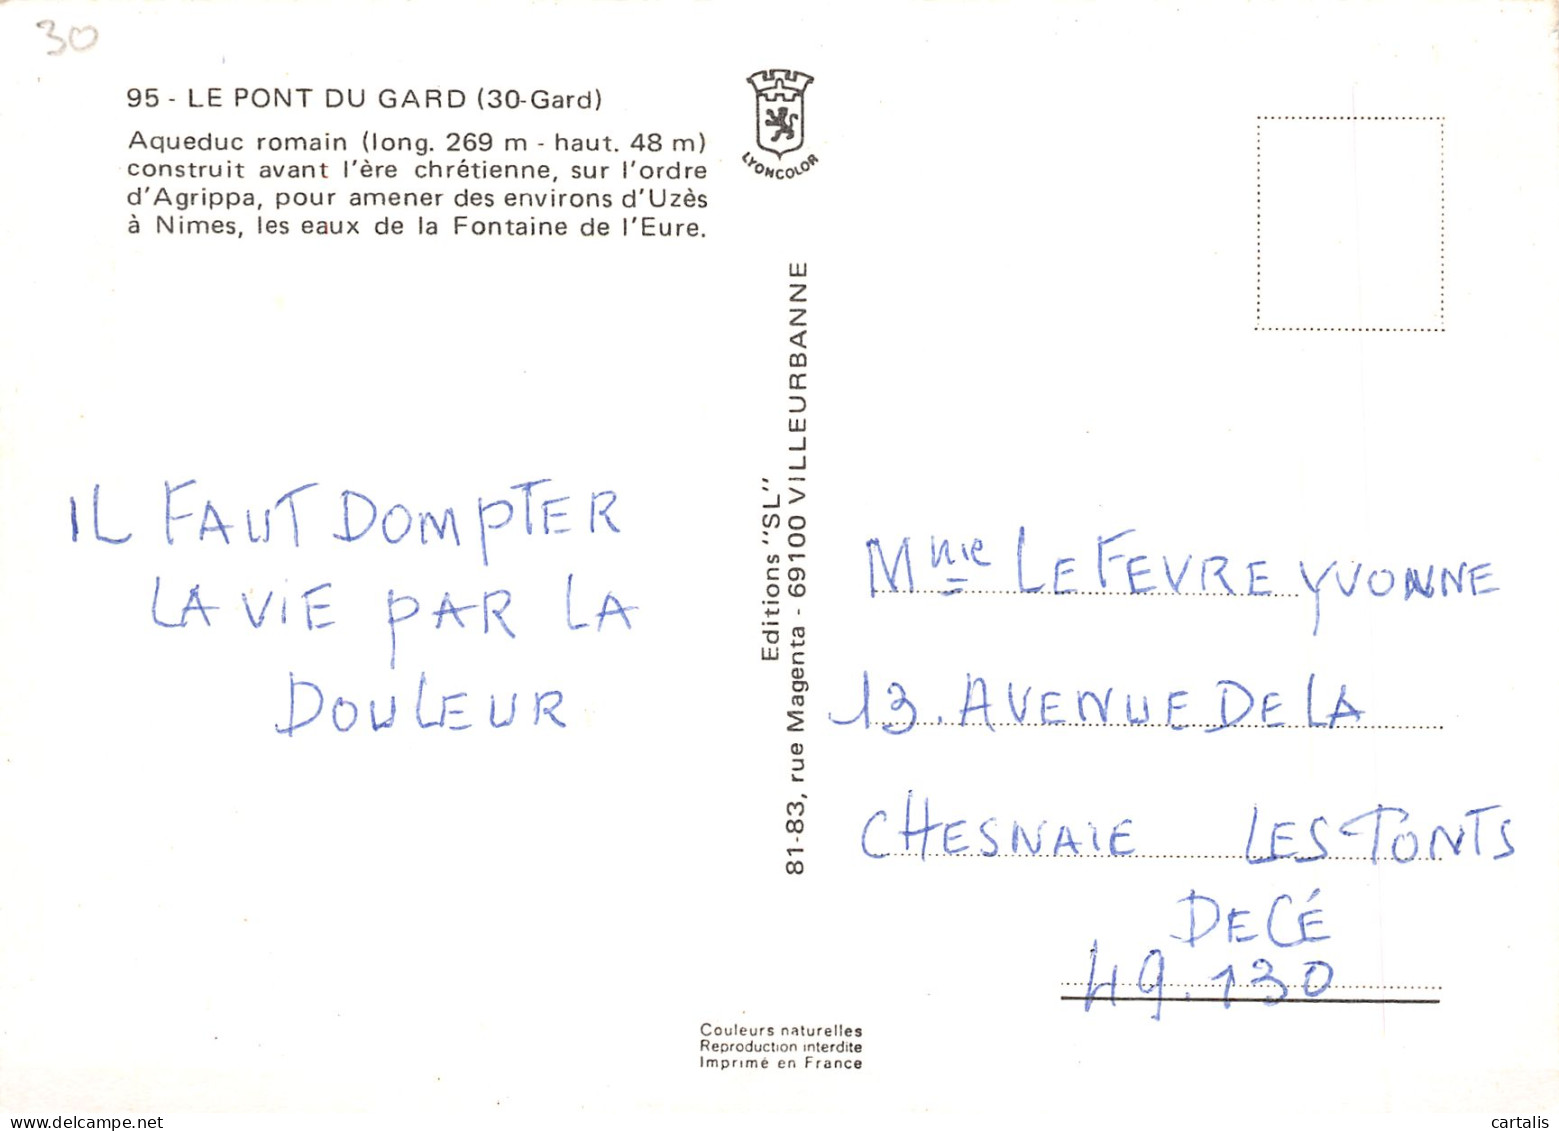 30
95 - LE PONT DU GARD (30-Gard)
Aqueduc romain (long. 269 m - haut. 48 m)
construit avant l'ère chrétienne, sur l'ordre
d'Agrippa, pour amener des environs d'Uzès
à Nimes, les eaux de la Fontaine de l'Eure.
LYONCOLOR
IL FAUT DOMPTER
LA VIE PAR LA
DOULEUR
Editions "SL"
81-83, rue Magenta - 69100 VILLEURBANNE
Mme LEFEVRE YVONNE
13. AVENUE DE LA
CHESNAIE LES PONTS
DE CÉ
49.130
Couleurs naturelles
Reproduction interdite
Imprimé en France
cartalis